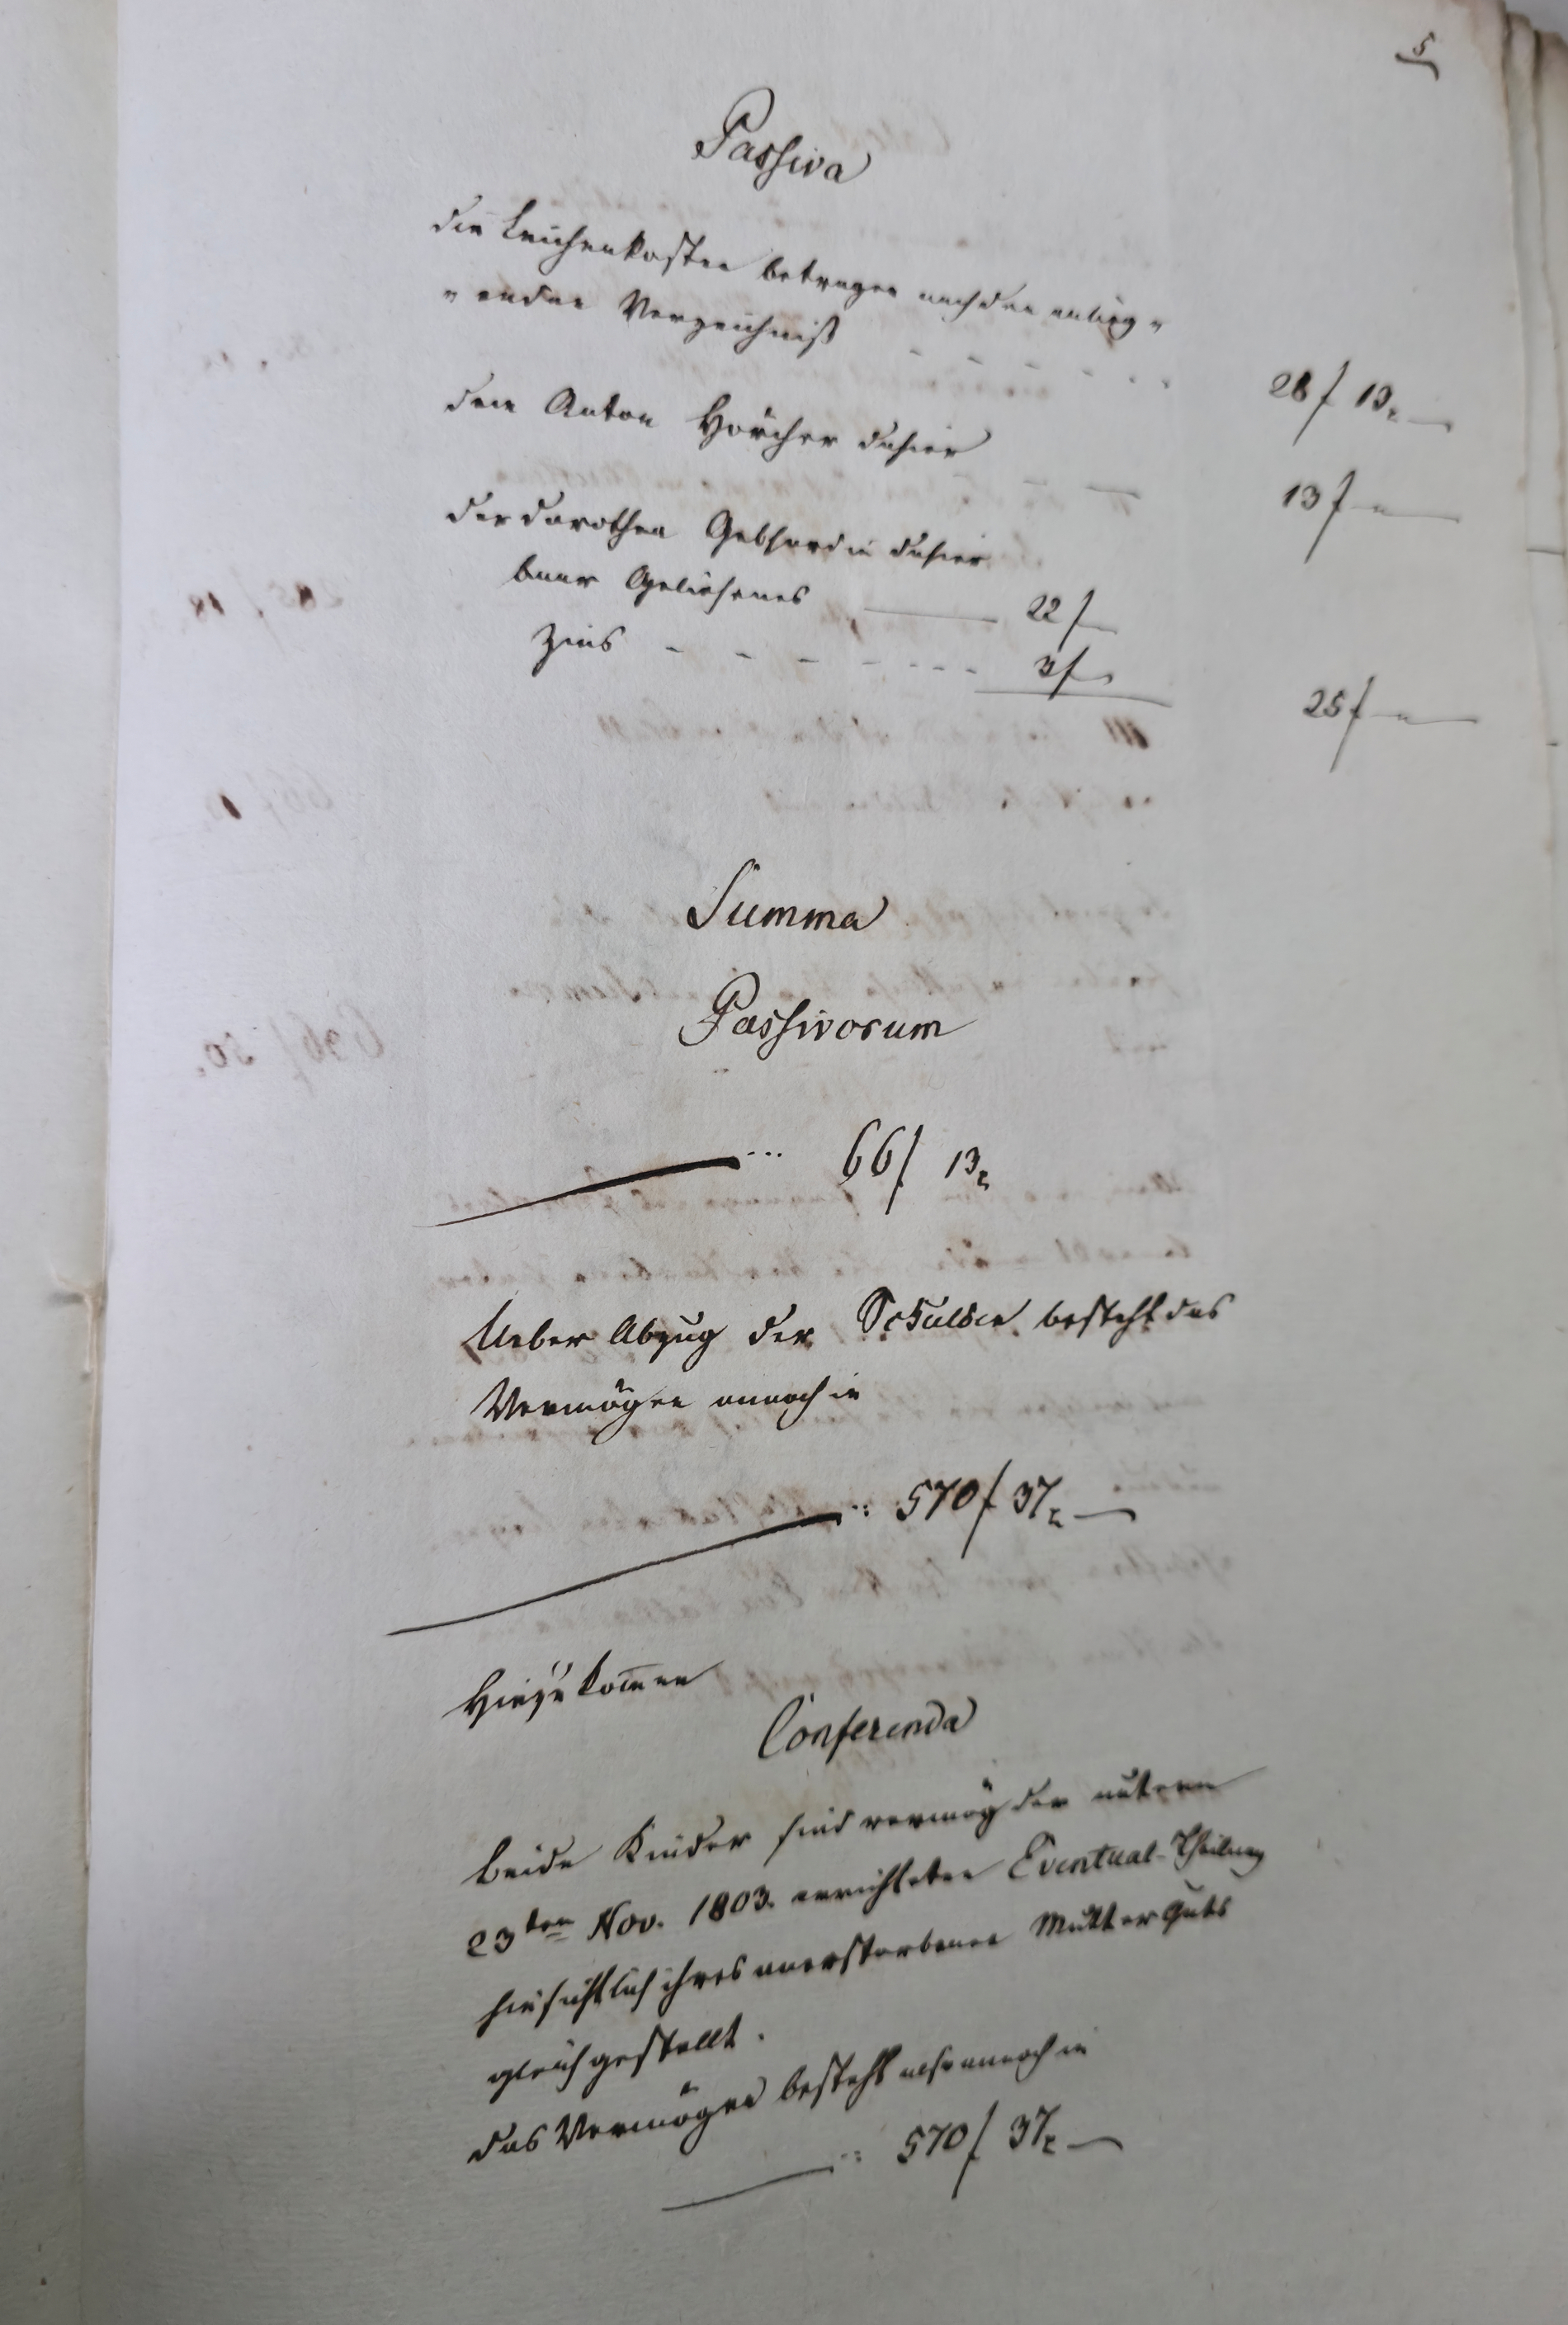 5
Passiva
die Leichenkosten betragen nach dem anlieg-
-enden Verzeichniß - - - - - - 28 f 13 x
dem Anton Hörcher dahier - - 13 f -
der Dorothea Gebhardin dahier
baar Geliehenes — 22 f
Zins - - - - - - - 3 f
25 f -
Summa
Passivorum
66 f 13 x
Ueber Abzug der Schulden besteht das
Vermögen annoch in
570 f 37 x
Hiezu kommen
Conferenda
beide Kinder sind vermög der unterm
23ten Nov. 1803. errichteten Eventual-Theilung
hinsichtlich ihres anerstorbenen Mutterguts
gleich gestellt.
das Vermögen besteht also annoch in
570 f 37 x